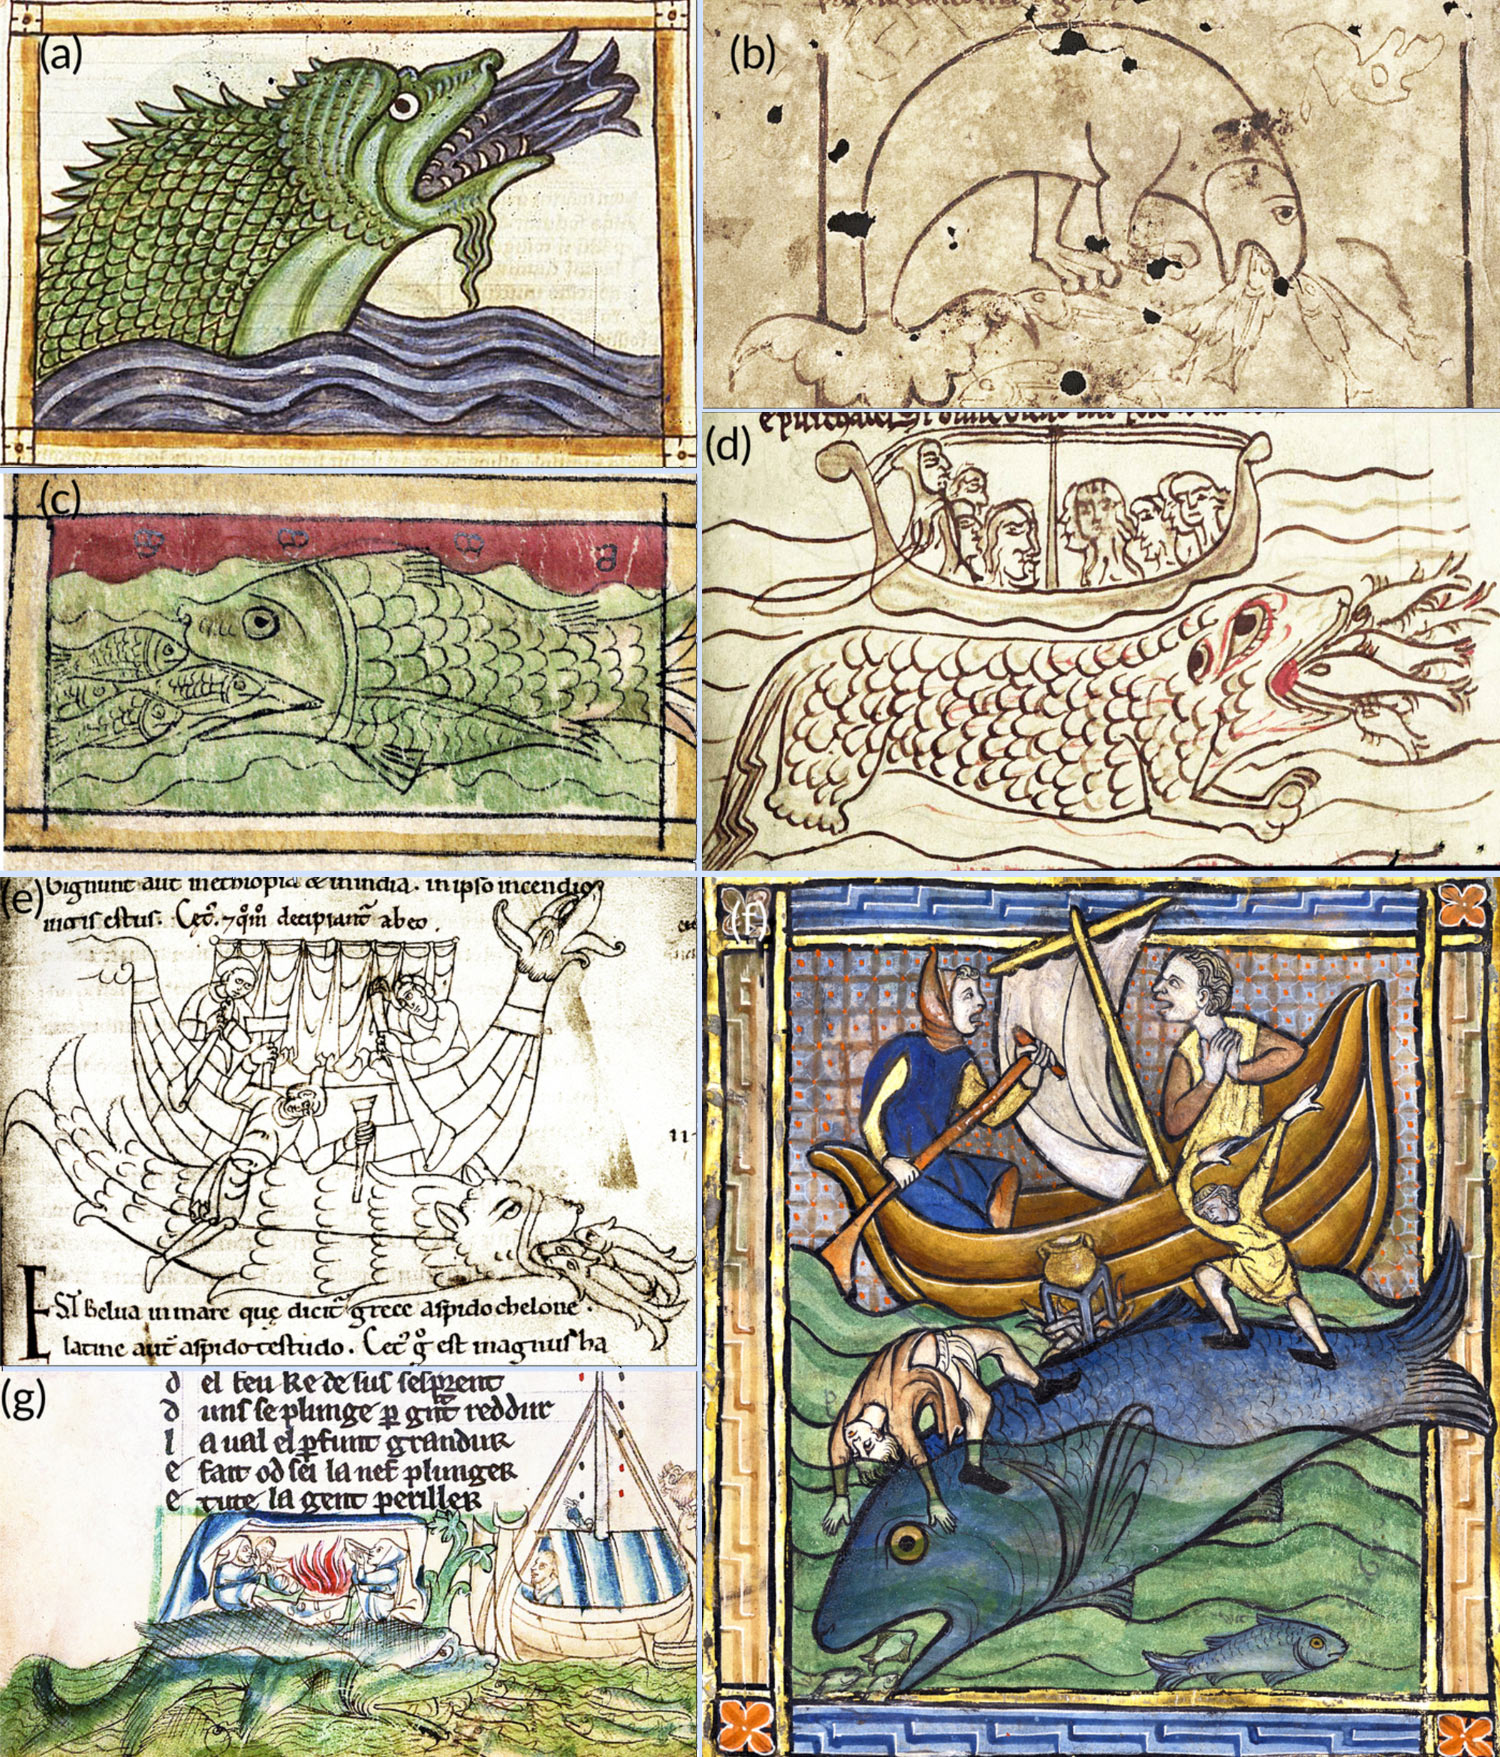 (a)
(b)
(c)
(d)
(e)
Gignunt aut in ethiopia & in india. in ipso incendio
decipiant ab eo.
EST Belua in mare que dicit grece aspidochelone.
latine aut aspido testudo. Cet g est magnus ha
(f)
(g)
d el feu ke de sus sesprent
d unc se plunge p reddur
l a ual el pfunt grandur
e fait od sei la nef plunger
e tute la gent periller